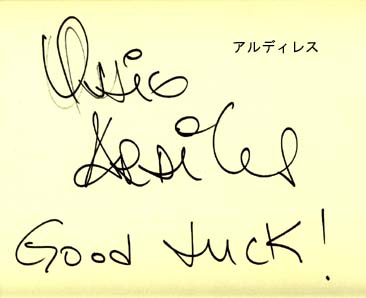 アルディレス
Ossie
Ardiles
Good Luck!